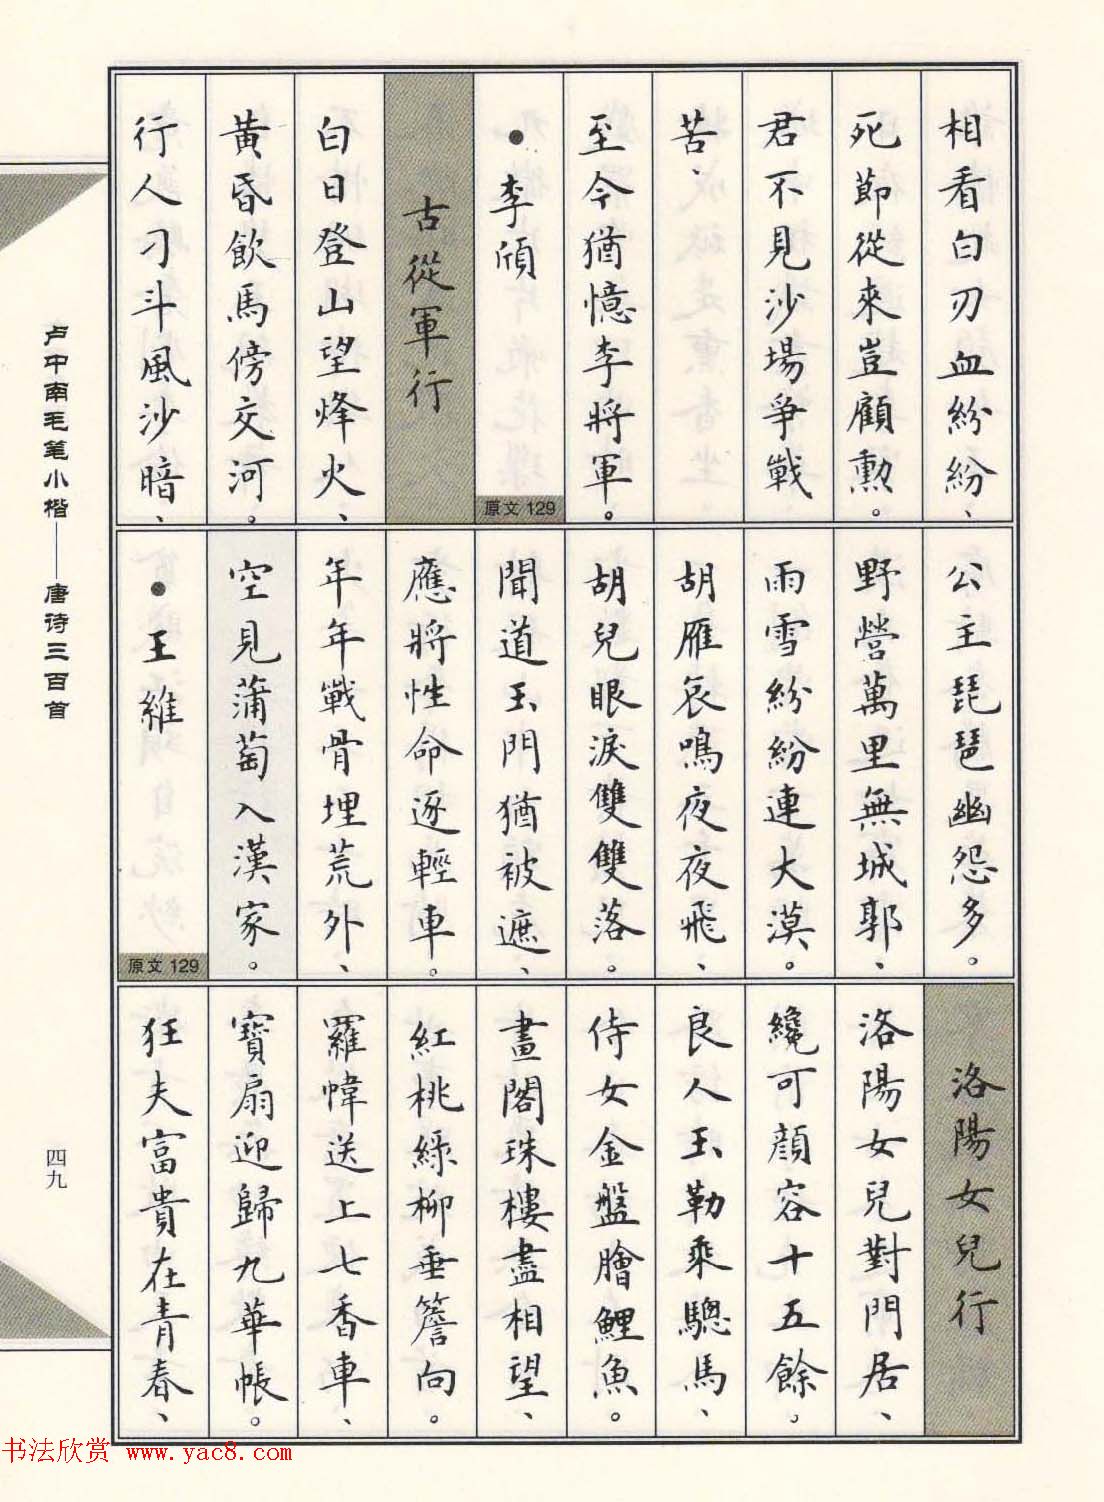 相看白刃血紛紛、
死節從來豈顧勲。
君不見沙場爭戰
苦、
至今猶憶李將軍。
• 李頎
原文 129
古從軍行
白日登山望烽火、
黃昏飲馬傍交河。
行人刁斗風沙暗、
公主琵琶幽怨多。
野營萬里無城郭、
雨雪紛紛連大漠。
胡雁哀鳴夜夜飛、
胡兒眼淚雙雙落。
聞道玉門猶被遮、
應將性命逐輕車。
年年戰骨埋荒外、
空見蒲萄入漢家。
• 王維
原文 129
洛陽女兒行
洛陽女兒對門居、
纔可顔容十五餘。
良人玉勒乘驄馬、
侍女金盤膾鯉魚。
畫閣珠樓盡相望、
紅桃綠柳垂簷向。
羅幃送上七香車、
寶扇迎歸九華帳。
狂夫富貴在青春、
卢中南毛笔小楷——唐诗三百首
四九
书法欣赏 www.yac8.com